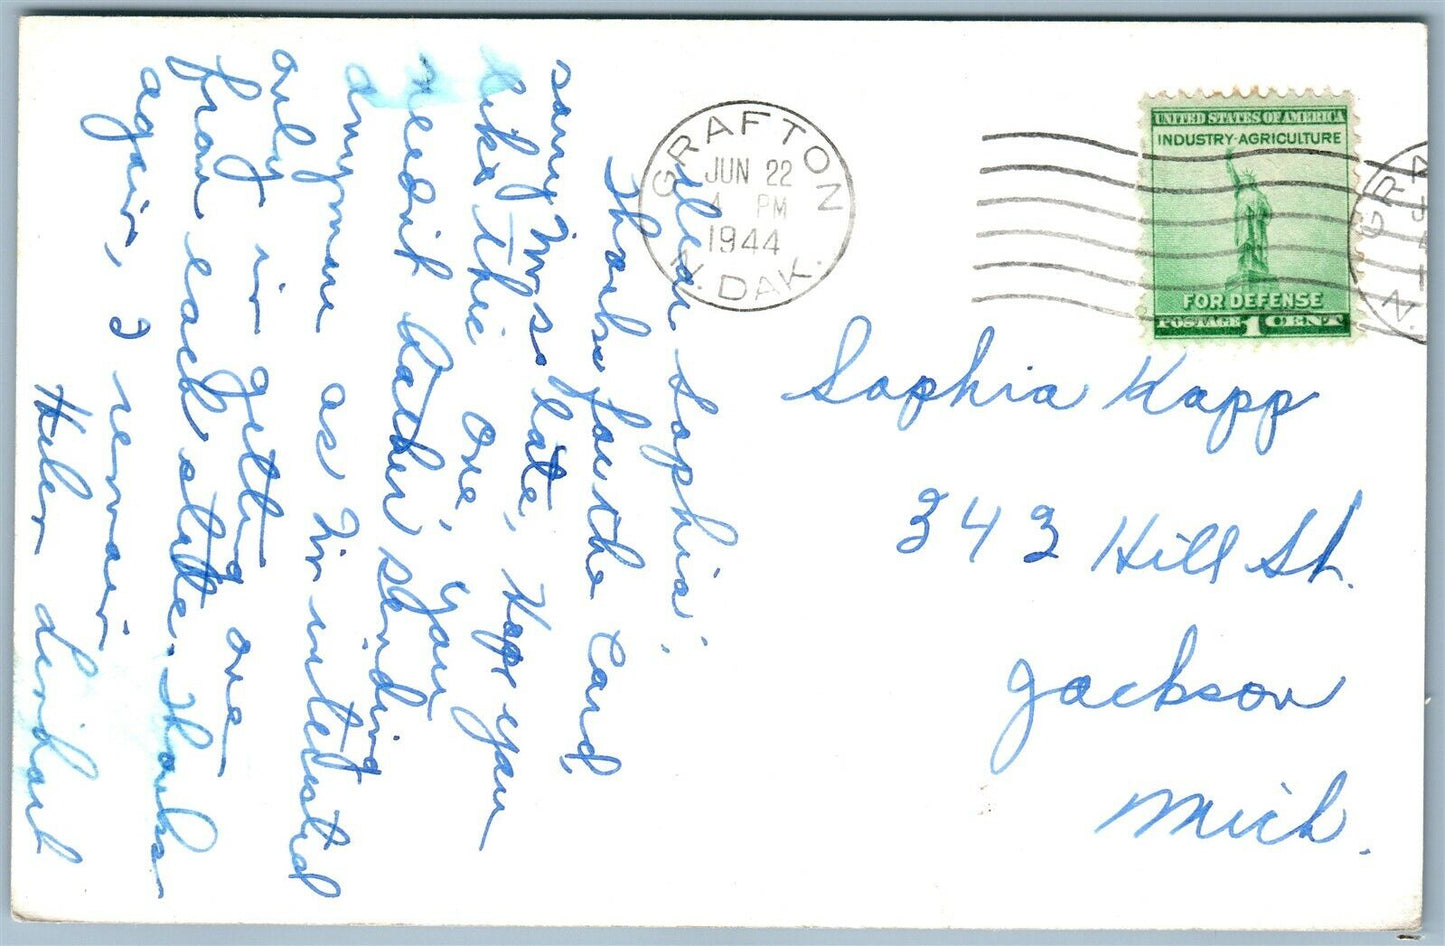 Dear Sophia;
Thanks for the Card,
sorry I'm so late, Hope you
like this one, you
needn't bother sending
anymore as I'm interested
only in getting one
from each state. Thanks
again, I remain
Helen
GRAFTON
JUN 22
4 PM
1944
N. DAK.
UNITED STATES OF AMERICA
INDUSTRY-AGRICULTURE
FOR DEFENSE
POSTAGE 1 CENT
Sophia Kapp
342 Hill St.
Jackson
Mich.